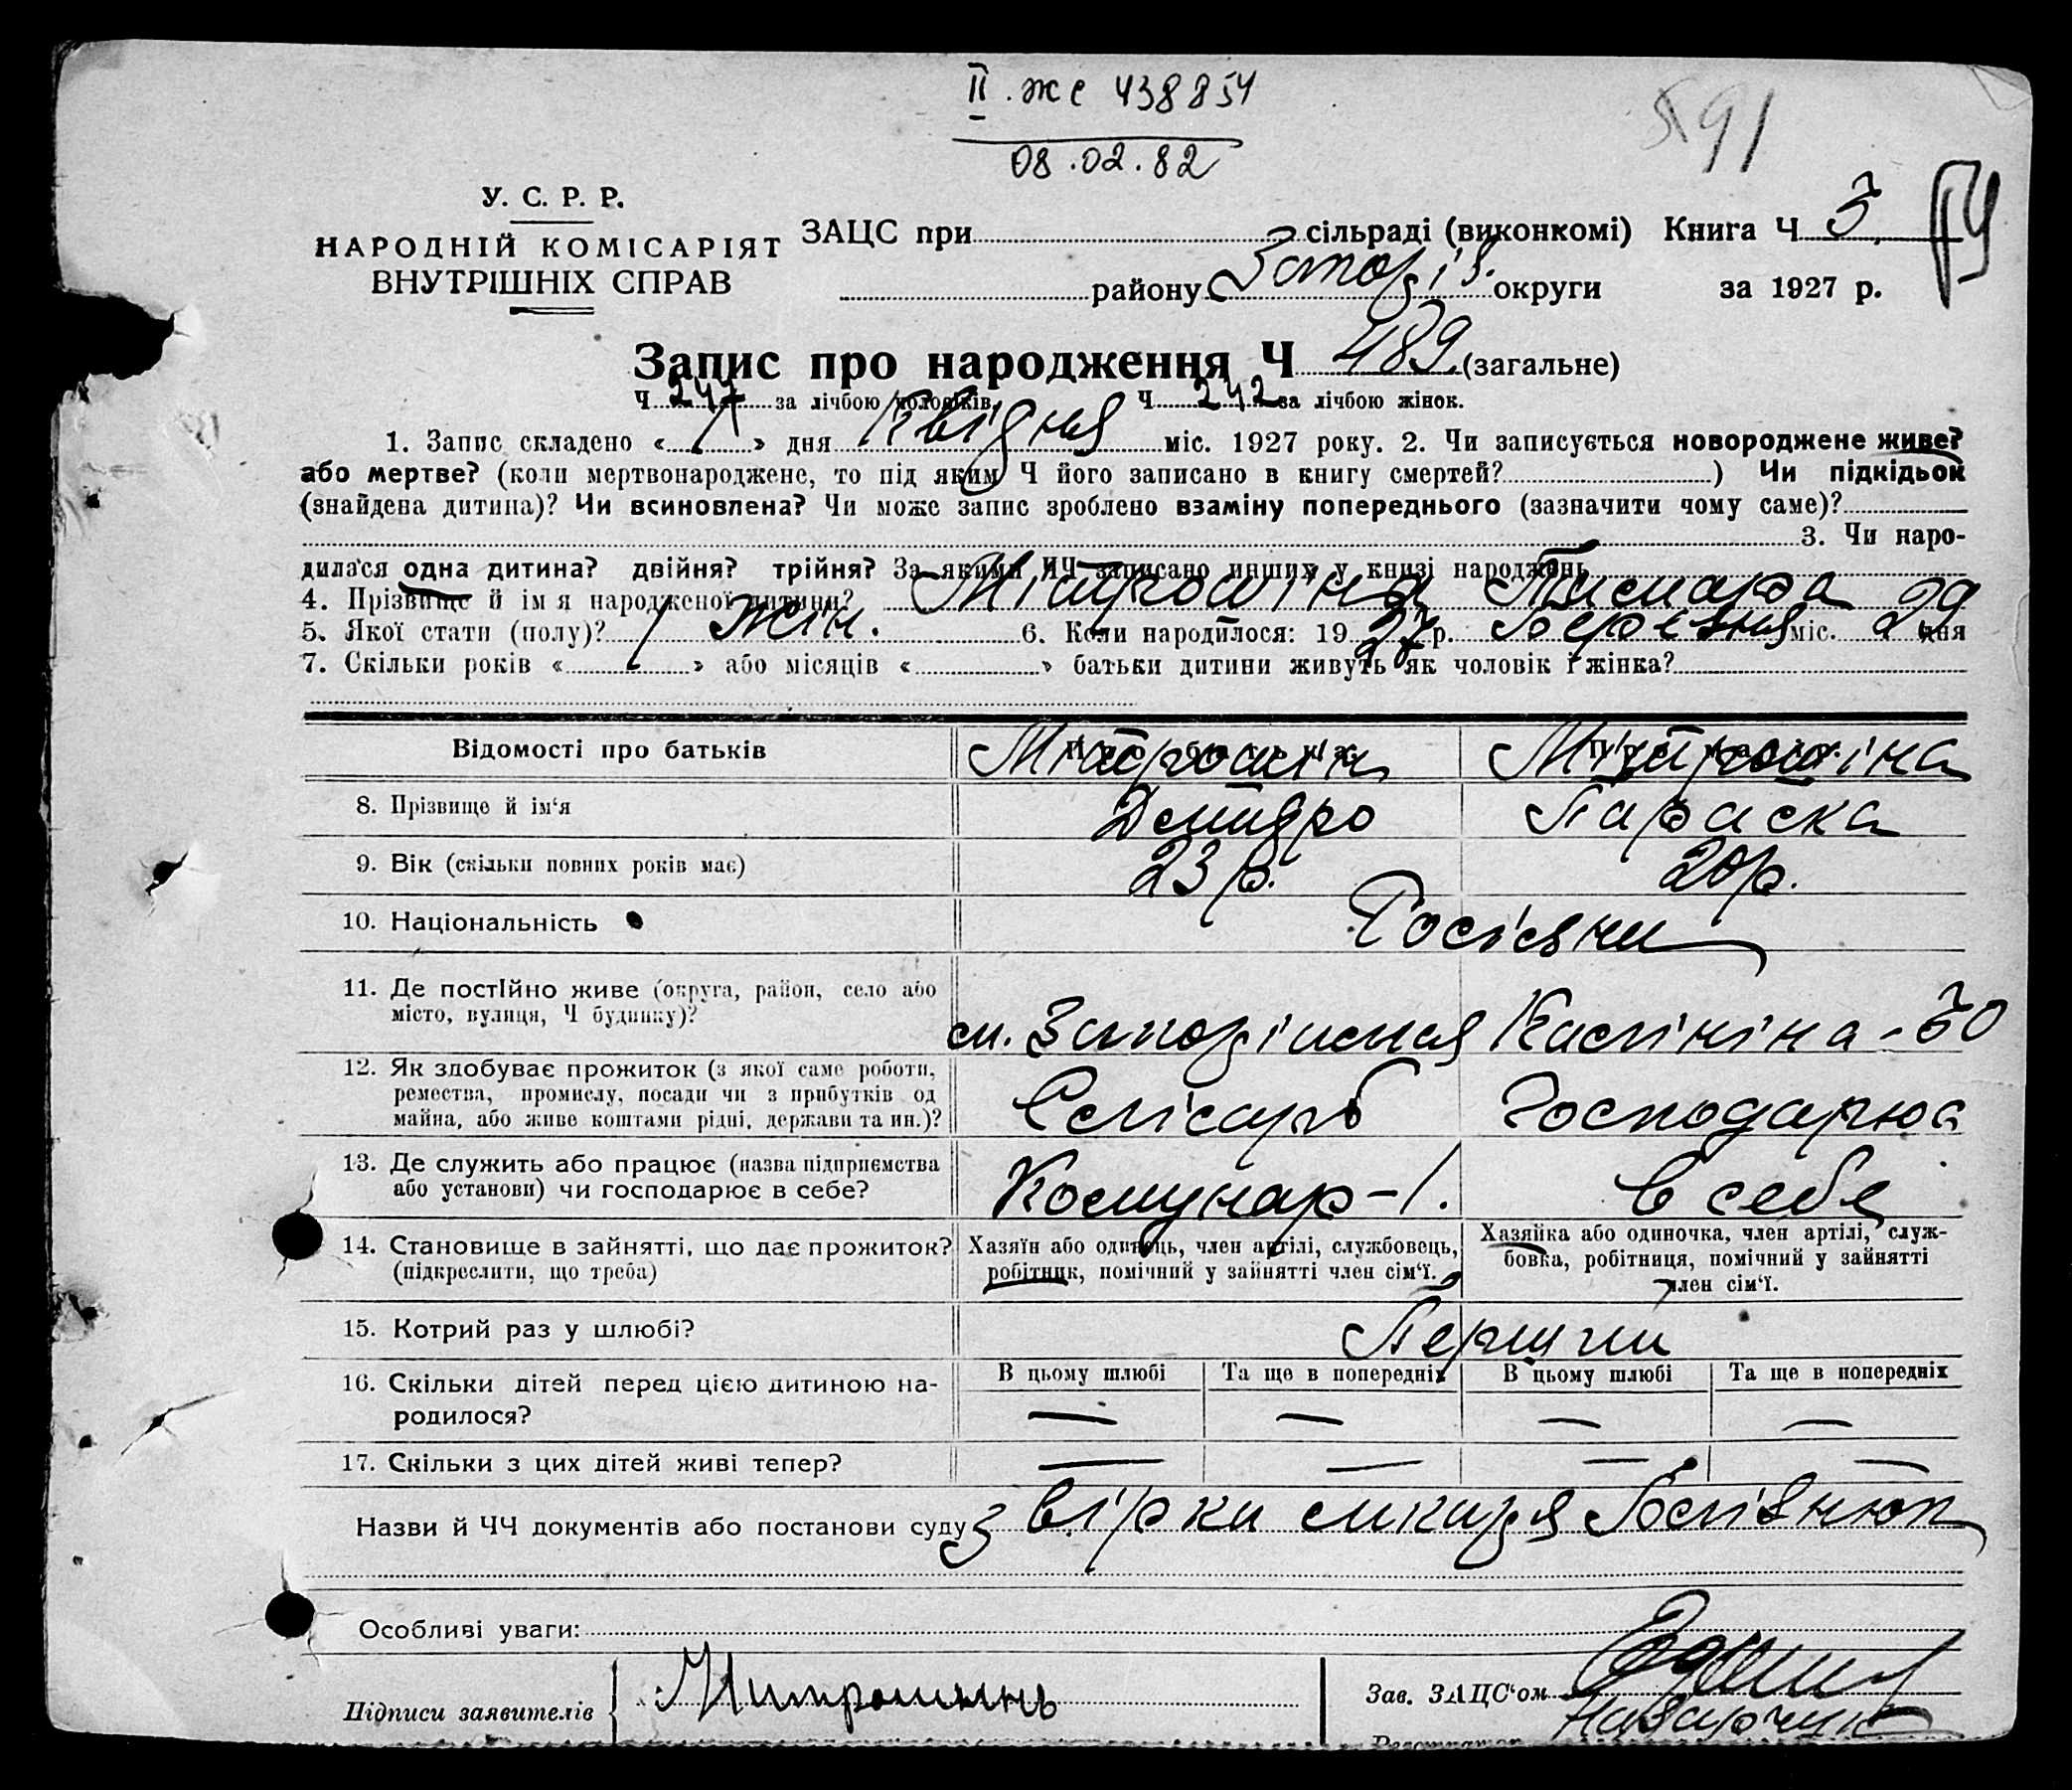 II. ЖС 438854
08.02.82
591
У. С. Р. Р.
НАРОДНІЙ КОМІСАРІЯТ
ВНУТРІШНІХ СПРАВ
ЗАЦС при сільраді (виконкомі) Книга Ч 3
району Запоріз. округи за 1927 р.
Запис про народження Ч 489 (загальне)
Ч 247 за лічбою чоловіків, Ч 242 за лічбою жінок.
1. Запис складено « 1 » дня Квідня міс. 1927 року. 2. Чи записується новороджене живе?
або мертве? (коли мертвонароджене, то під яким Ч його записано в книгу смертей? ) Чи підкідьок
(знайдена дитина)? Чи всиновлена? Чи може запис зроблено взаміну попереднього (зазначити чому саме)?
3. Чи наро-
дилася одна дитина? двійня? трійня? За якими ЧЧ записано инших у книзі народжень
4. Прізвище й ім'я народженої дитини? Мітрошіна Тамара
5. Якої стати (полу)? жін. 6. Коли народилося: 1927 р. Березня міс. 29 дня
7. Скільки років « 1 » або місяців « » батьки дитини живуть як чоловік і жінка?
Відомості про батьків
8. Прізвище й ім'я Мітрошін Дмитро Мітрошіна Параска
9. Вік (скільки повних років має) 23 р. 20 р.
10. Національність Росіяни
11. Де постійно живе (округа, район, село або
місто, вулиця, Ч будинку)? м. Запоріжжя Калініна - 30
12. Як здобуває прожиток (з якої саме роботи,
ремества, промислу, посади чи з прибутків од
майна, або живе коштами рідні, держави та ин.)? Слісарь Господарює
13. Де служить або працює (назва підприємства
або установи) чи господарює в себе? Комунар-1. в себе
14. Становище в зайнятті, що дає прожиток?
(підкреслити, що треба)
Хазяїн або одинець, член артілі, службовець,
робітник, помічний у зайнятті член сім'ї.
Хазяйка або одиночка, член артілі, служ-
бовка, робітниця, помічний у зайнятті
член сім'ї.
15. Котрий раз у шлюбі? Перший
16. Скільки дітей перед цією дитиною на-
родилося?
В цьому шлюбі Та ще в попередніх В цьому шлюбі Та ще в попередніх
— — — —
17. Скільки з цих дітей живі тепер? — — — —
Назви й ЧЧ документів або постанови суду
Особливі уваги:
Підписи заявителів Митрошинъ
Зав. ЗАЦС'ом